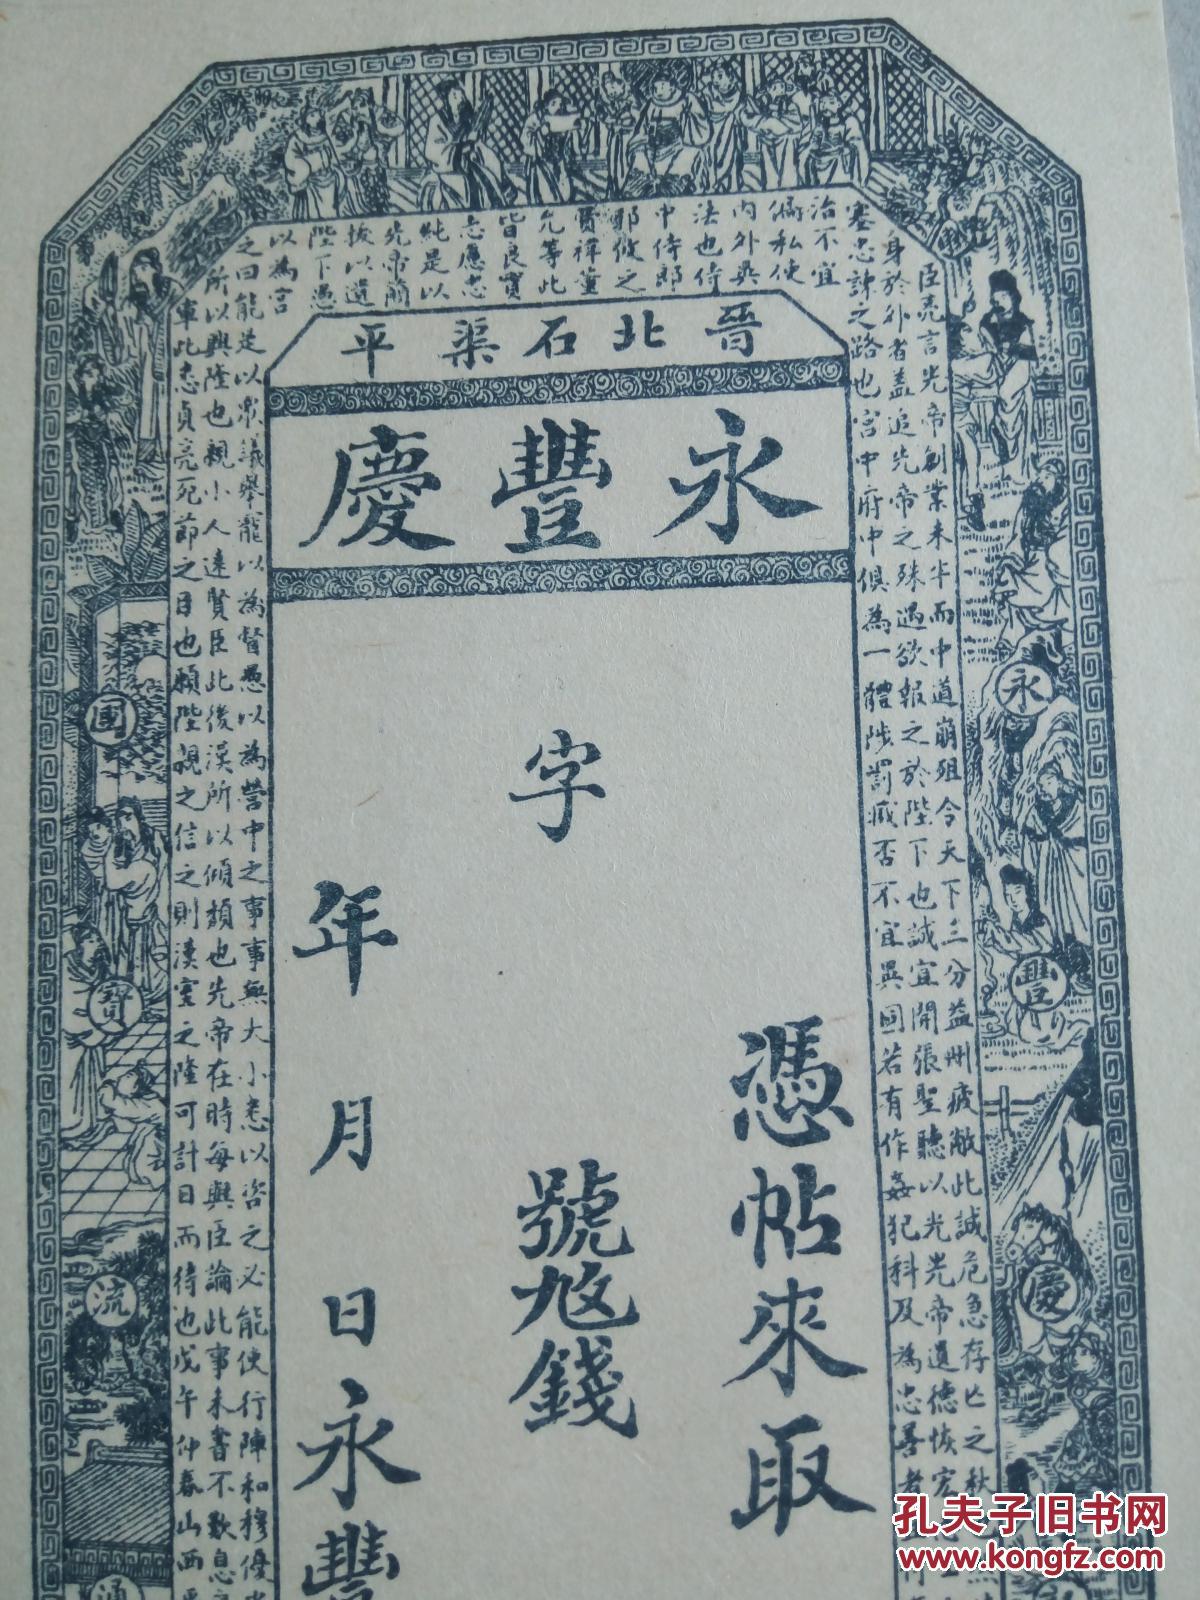 晉北石渠平
永豐慶
憑帖來取
字
號
錢
年月日永豐
永
豐
慶
國
寶
流
通
臣亮言先帝創業未半而中道崩殂今天下三分益州疲敝此誠危急存亡之秋
身於外者盖追先帝之殊遇欲報之於陛下也誠宜開張聖聽以光先帝遺德恢宏
塞忠諫之路也宮中府中俱為一體陟罰臧否不宜異同若有作姦犯科及為忠善者
治不宜
偏私使
內外異
法也侍
中侍郎
郭攸之
費禕董
允等此
皆良實
志慮忠
純是以
先帝簡
拔以遺
陛下愚
以為宮
之曰能是以衆議舉寵以為督愚以為營中之事事無大小悉以咨之必能使行陣和穆優
所以興隆也親小人遠賢臣此後漢所以傾頹也先帝在時每與臣論此事未嘗不歎息
軍此悉貞亮死節之臣也願陛親之信之則漢室之隆可計日而待也戊午仲春山西
孔夫子旧书网
www.kongfz.com